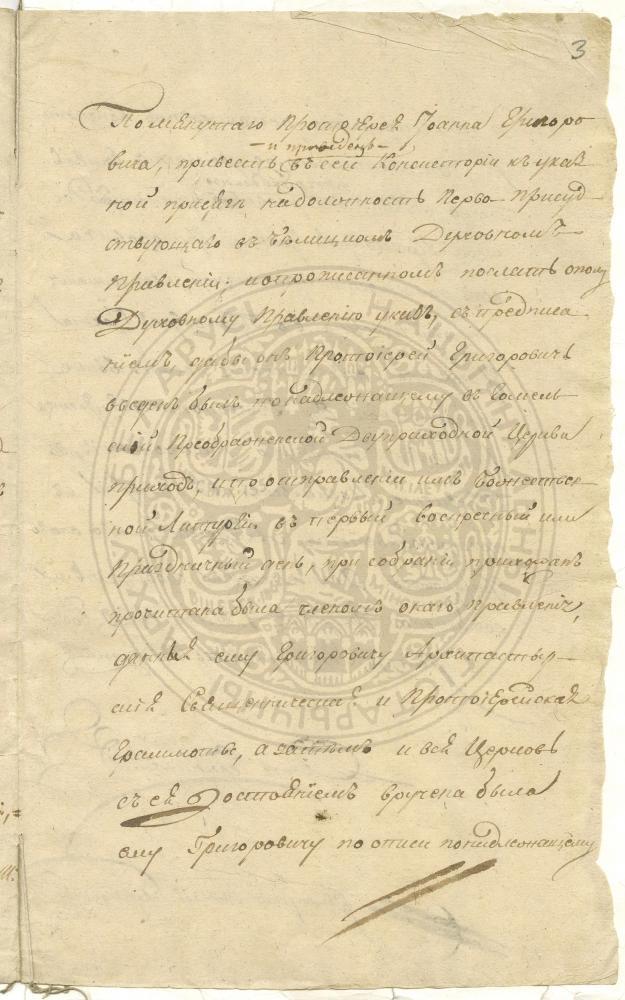 3
Помянутаго Протоіерея Іоанна Григоро
вича, привесть въ сей Консисторіи къ указ
ной присягѣ на должность Перво-Присуд-
ствующаго въ Бѣлицкомъ Духовномъ
Правленіи. и о прописанномъ послать оному
Духовному Правленію указъ, съ предписа
ніемъ, дабы онъ Протоіерей Григоровичь
введенъ былъ по надлежащему въ Гомель-
скій Преображенской Двуприходной Церкви
приходъ, и по отправленіи имъ Божествен-
ной Литургіи въ первый воскресный или
Праздничный день, при собраніи прихожанъ
прочитана была членомъ онаго правленія,
данная ему Григоровичу Архипастыр-
ская Священническая и Протоіерейская
Грамоты, а затѣмъ и вся Церковь
съ ея достояніемъ вручена была
ему Григоровичу по описи по надлежащему